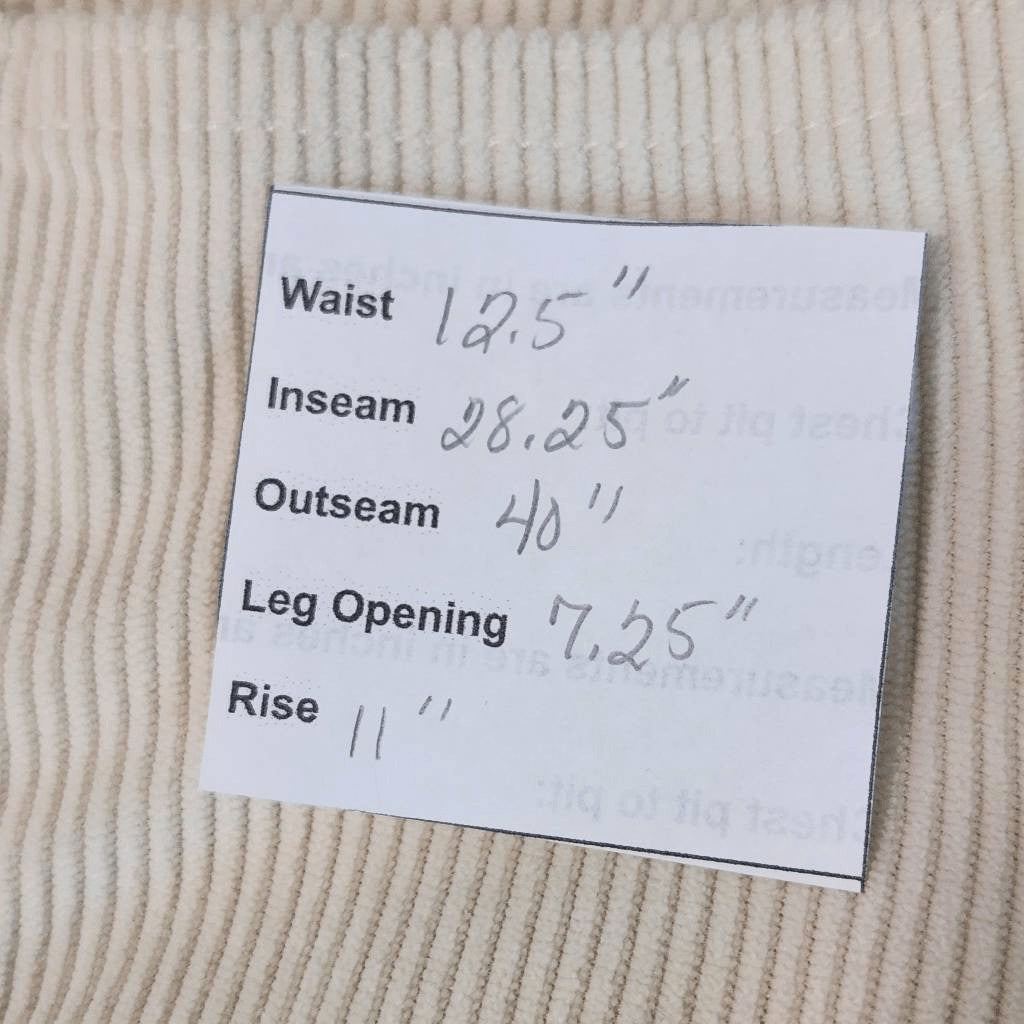 Waist 12.5"
Inseam 28.25"
Outseam 40"
Leg Opening 7.25"
Rise 11"